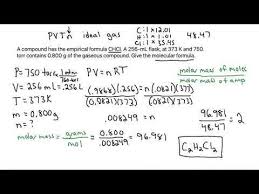 PVTn ideal gas
C: 1 x 12.01
H: 1 x 1.01
Cl: 1 x 35.45
48.47
A compound has the empirical formula CHCl. A 256-mL flask, at 373 K and 750.
torr contains 0.800 g of the gaseous compound. Give the molecular formula.
P = 750 torr
V = 256 mL = .256 L
T = 373 K
m = 0.800 g
n = ?
PV = nRT
(.9868)(.256) = n(.0821)(373)
(.0821)(373) (.0821)(373)
.008249 = n
molar mass = grams / mol
= 0.800 / .008249 = 96.981
molar mass of molec
molar mass of emp
96.981 / 48.47 = 2
C2H2Cl2